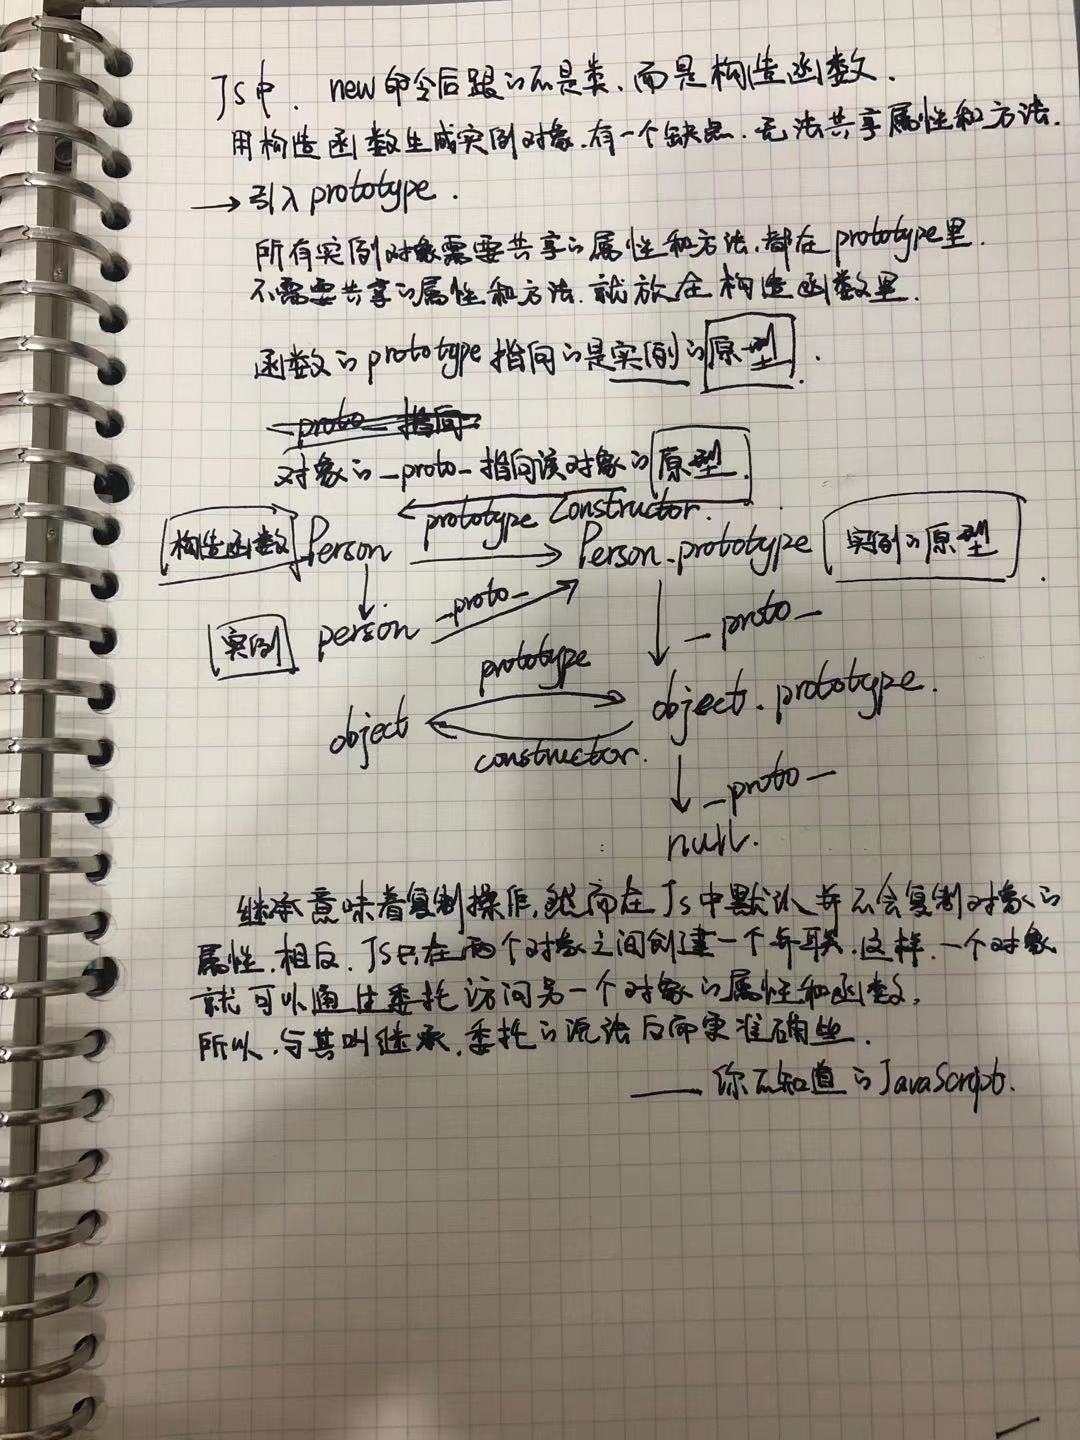 JS中，new命令后跟的不是类，而是构造函数.
用构造函数生成实例对象，有一个缺点，无法共享属性和方法.
→引入prototype.
所有实例对象需要共享的属性和方法，都在prototype里.
不需要共享的属性和方法，就放在构造函数里.
函数的prototype指向的是实例的原型.
_proto_ 指向
对象的_proto_指向该对象的原型.
prototype constructor.
构造函数 Person → Person.prototype 实例的原型.
实例 person _proto_
_proto_
prototype
object object.prototype.
constructor.
_proto_
null.
继承意味着复制操作，然而在JS中默认并不会复制对象的
属性，相反，JS只在两个对象之间创建一个关联，这样，一个对象
就可以通过委托访问另一个对象的属性和函数，
所以，与其叫继承，委托的说法反而更准确些.
——你不知道的JavaScript.